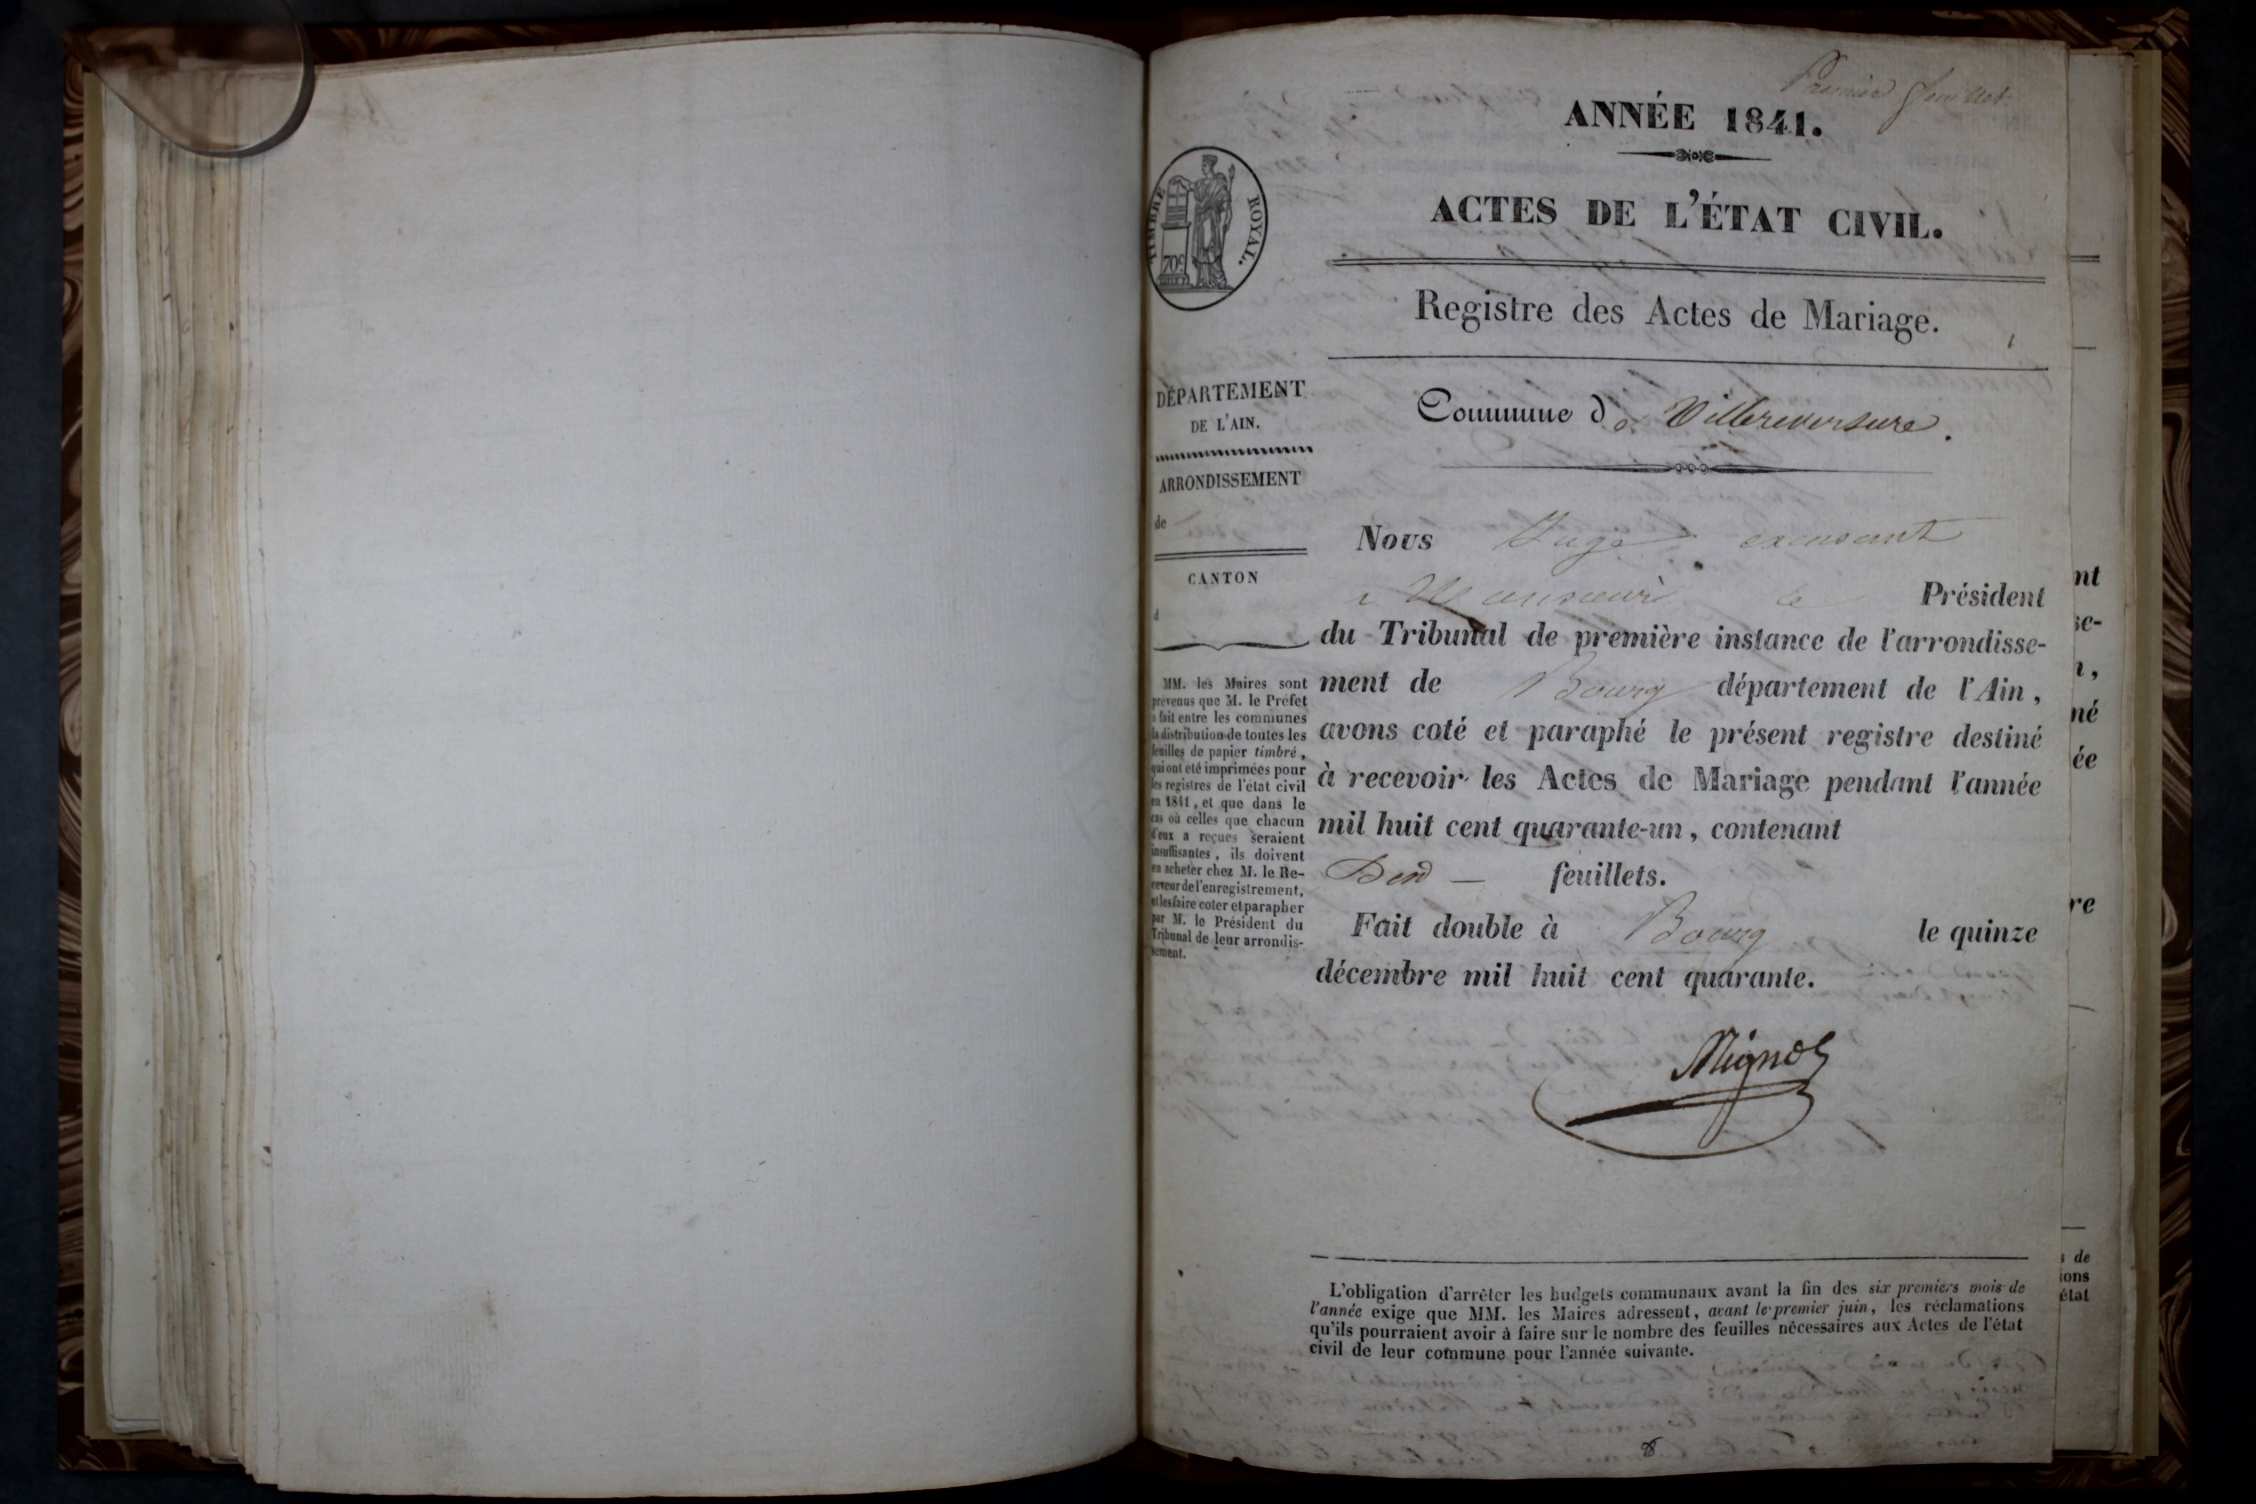 Premier feuillet
ANNÉE 1841.
ACTES DE L'ÉTAT CIVIL.
TIMBRE ROYAL.
70c
Registre des Actes de Mariage.
1
DÉPARTEMENT
DE L'AIN.
ARRONDISSEMENT
de
CANTON
d
MM. les Maires sont
prévenus que M. le Préfet
a fait entre les communes
la distribution de toutes les
feuilles de papier timbré,
qui ont été imprimées pour
les registres de l'état civil
en 1841, et que dans le
cas où celles que chacun
d'eux a reçues seraient
insuffisantes, ils doivent
en acheter chez M. le Re-
ceveur de l'enregistrement,
et les faire coter et parapher
par M. le Président du
Tribunal de leur arrondis-
sement.
Commune de Villereversure.
Nous Juge
Monsieur le Président
du Tribunal de première instance de l'arrondisse-
ment de Bourg département de l'Ain,
avons coté et paraphé le présent registre destiné
à recevoir les Actes de Mariage pendant l'année
mil huit cent quarante-un, contenant
feuillets.
Fait double à Bourg le quinze
décembre mil huit cent quarante.
L'obligation d'arrêter les budgets communaux avant la fin des six premiers mois de
l'année exige que MM. les Maires adressent, avant le premier juin, les réclamations
qu'ils pourraient avoir à faire sur le nombre des feuilles nécessaires aux Actes de l'état
civil de leur commune pour l'année suivante.
nt
se-
n,
né
ée
re
s de
ions
état